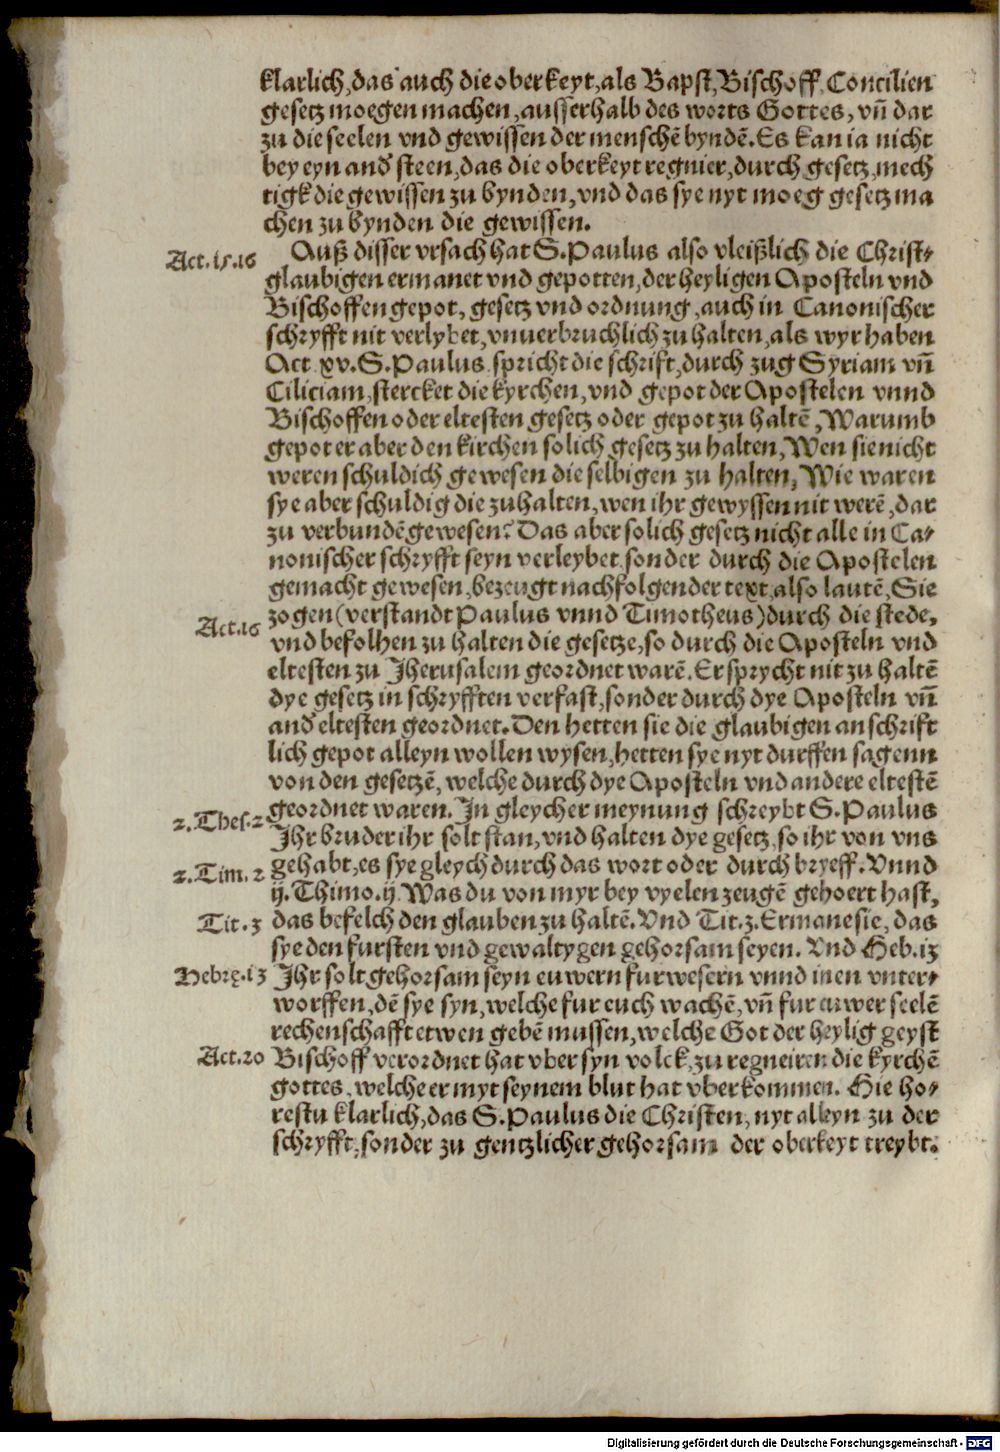 klarlich, das auch die oberkeyt, als Bapst, Bischoff, Concilien
gesetz moegen machen, ausserhalb des worts Gottes, vn̄ dar
zu die seelen vnd gewissen der menschē byndē. Es kan ia nicht
bey eyn and' steen, das die oberkeyt regnier, durch gesetz, mech
tigk die gewissen zu bynden, vnd das sye nyt moeg gesetz ma
chen zu bynden die gewissen.
Act. 15. 16
Auß disser vrsach hat S. Paulus also vleißlich die Christ⸗
glaubigen ermanet vnd gepotten, der heyligen Aposteln vnd
Bischoffen gepot, gesetz vnd ordnung, auch in Canonischer
schryfft nit verlybet, vnuerbruchlich zu halten, als wyr haben
Act xv. S. Paulus spricht die schrift, durch zug Syriam vn̄
Ciliciam, stercket die kyrchen, vnd gepot der Apostelen vnnd
Bischoffen oder eltesten gesetz oder gepot zu haltē, Warumb
gepot er aber den kirchen solich gesetz zu halten, Wen sie nicht
weren schuldich gewesen die selbigen zu halten, Wie waren
sye aber schuldig die zuhalten, wen ihr gewyssen nit werē, dar
zu verbundē gewesen? Das aber solich gesetz nicht alle in Ca⸗
nonischer schryfft seyn verleybet sonder durch die Apostelen
gemacht gewesen, bezeugt nachfolgender text, also lautē, Sie
Act. 16
zogen (verstandt Paulus vnnd Timotheus) durch die stede,
vnd befolhen zu halten die gesetze, so durch die Aposteln vnd
eltesten zu Jherusalem geordnet warē. Er sprycht nit zu haltē
dye gesetz in schryfften verfast, sonder durch dye Aposteln vn̄
and' eltesten geordnet. Den hetten sie die glaubigen an schrift
lich gepot alleyn wollen wysen, hetten sye nyt durffen sagenn
von den gesetzē, welche durch dye Aposteln vnd andere eltestē
geordnet waren. Jn gleycher meynung schreybt S. Paulus
2. Thes. 2
Jhr bruder ihr solt stan, vnd halten dye gesetz, so ihr von vns
gehabt, es sye gleych durch das wort oder durch bryeff. Vnnd
2. Tim. 2
ij. Thimo. ij Was du von myr bey vyelen zeugē gehoert hast,
Tit. 3
das befelch den glauben zu haltē. Vnd Tit. 3. Ermane sie, das
sye den fursten vnd gewaltygen gehorsam seyen. Vnd Heb. 13
Hebre. 13
Jhr solt gehorsam seyn euwern furwesern vnnd inen vnter⸗
worffen, dē sye syn, welche fur euch wachē, vn̄ fur euwer seelē
rechenschafft etwen gebē mussen, welche Got der heylig geyst
Act. 20
Bischoff verordnet hat vber syn volck, zu regneiren die kyrchē
gottes, welche er myt seynem blut hat vberkommen. Hie ho⸗
restu klarlich, das S. Paulus die Christen, nyt alleyn zu der
schryfft, sonder zu gentzlicher gehorsam der oberkeyt treybt.
Digitalisierung gefördert durch die Deutsche Forschungsgemeinschaft - DFG